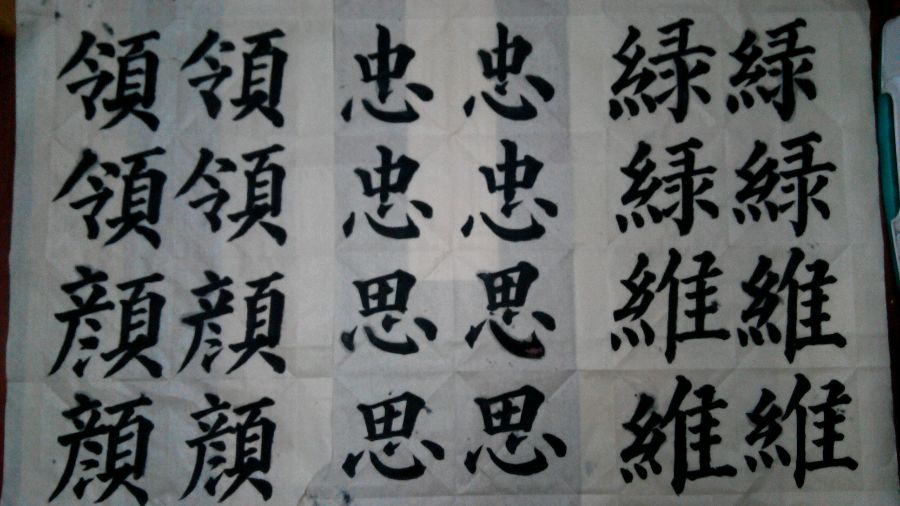 領領忠忠緑緑
領領忠忠緑緑
顔顔思思維維
顔顔思思維維